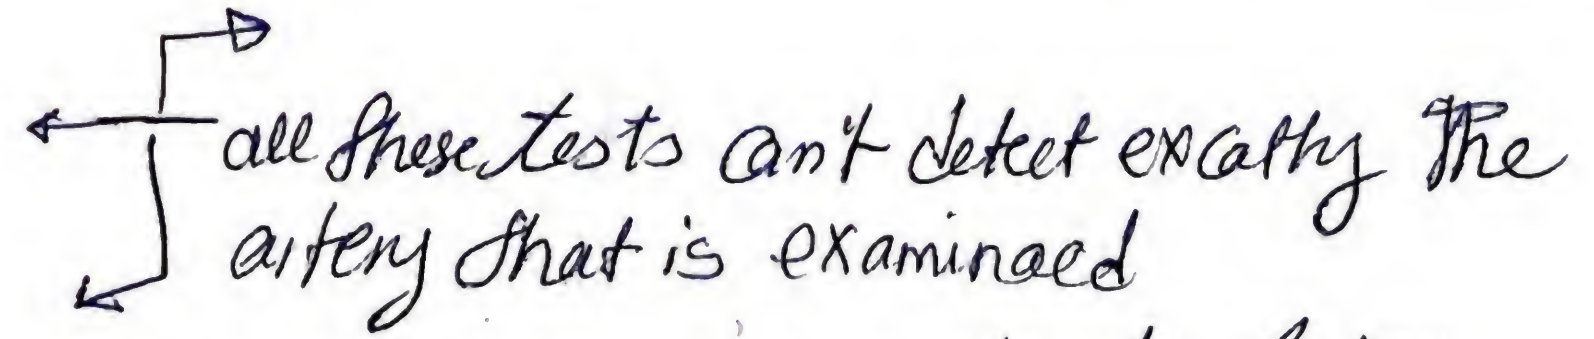 all these tests can't detect excathy the
artery that is examinaed